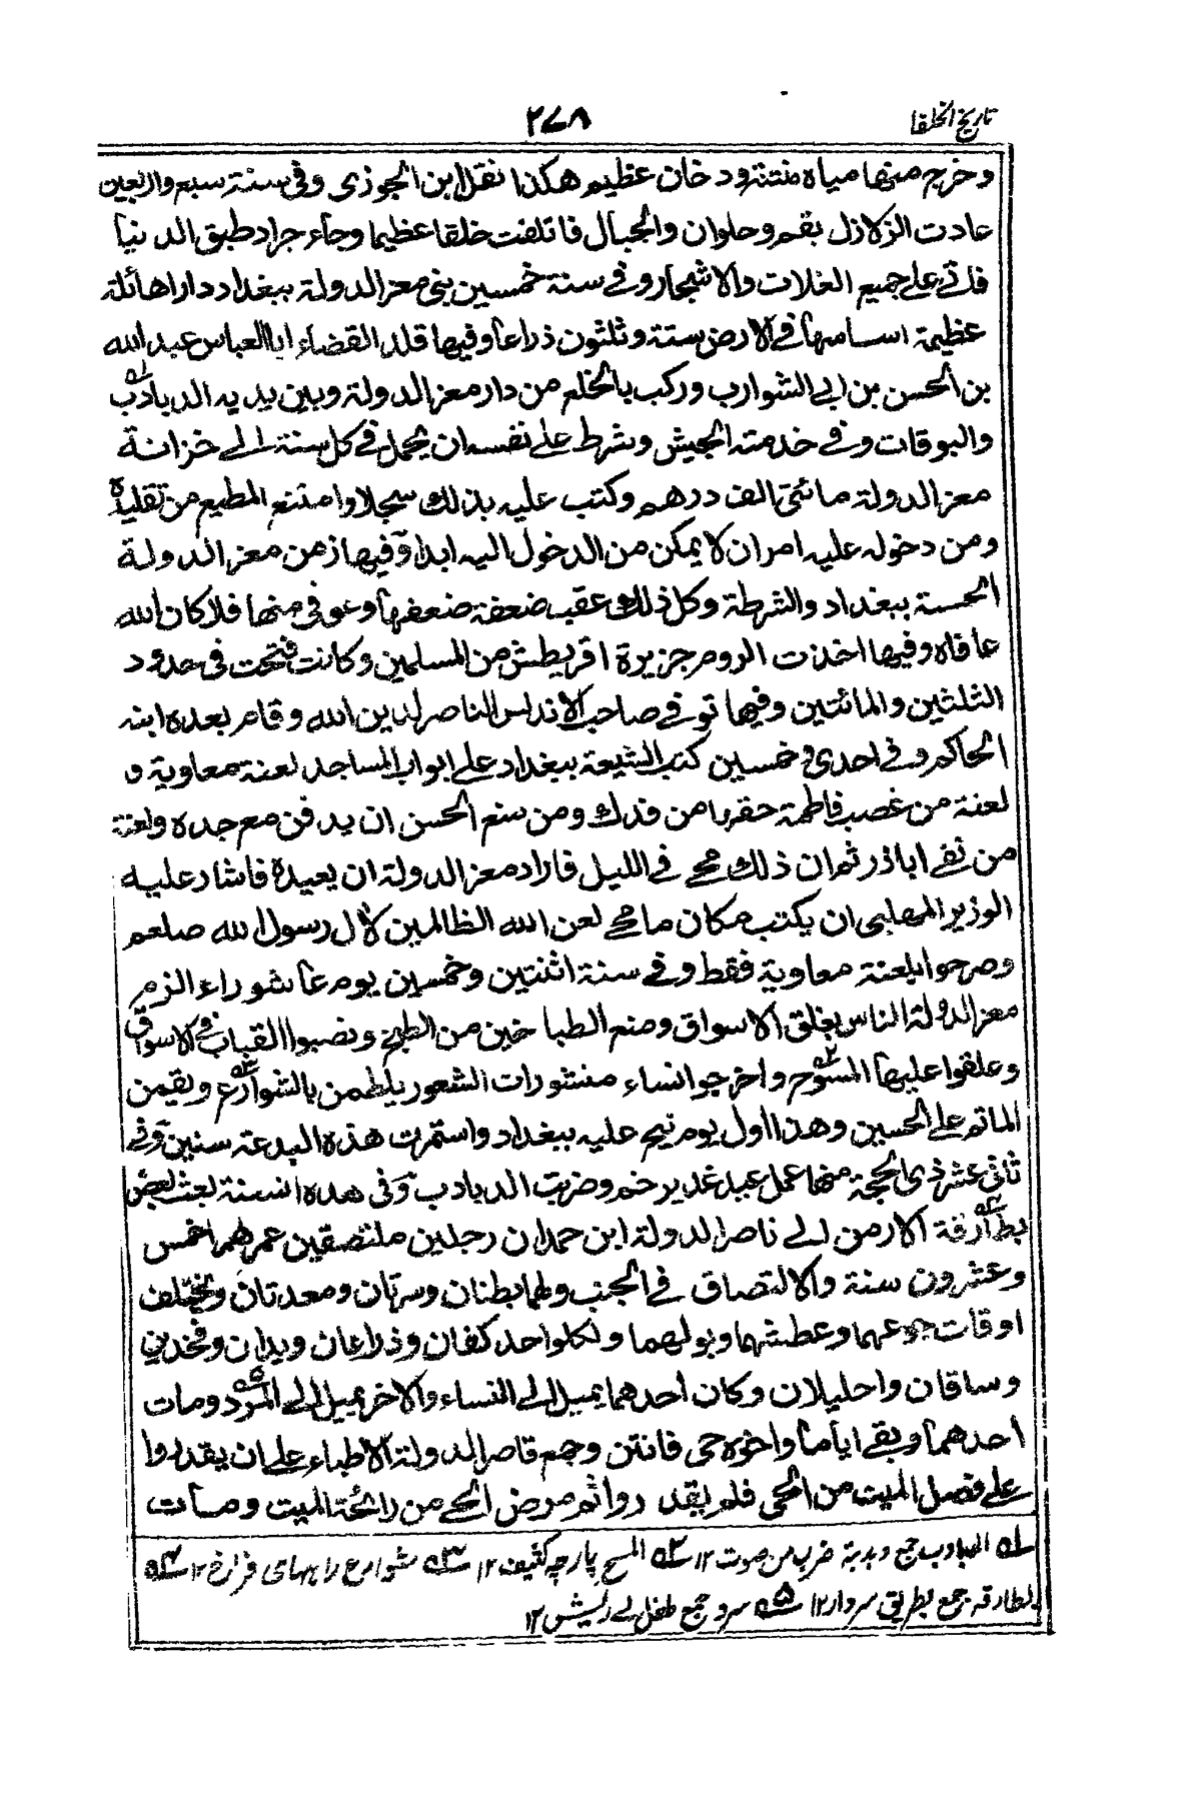 تاريخ الخلفا
٢٧٨
وخرج منها مياه منتنة ودخان عظيم هكذا نقل ابن الجوزى وفى سنة سبع واربعين
عادت الزلازل بقم وحلوان والجبال فاتلفت خلقا عظيما وجاء جراد طبق الدنيا
فاتى على جميع الغلات والاشجار وفى سنة خمسين بنى معز الدولة ببغداد دارا هائلة
عظيمة اساسها فى الارض ستة وثلثون ذراعا وفيها قلد القضاء ابا العباس عبد الله
بن الحسن بن ابى الشوارب وركب بالخلع من دار معز الدولة وبين يديه الدبادب
والبوقات وفى خدمته الجيش وشرط على نفسه ان يحمل فى كل سنة الى خزانة
معز الدولة مائتى الف درهم وكتب عليه بذلك سجلا وامتنع المطيع من تقليده
ومن دخوله عليه امر ان لا يمكن من الدخول اليه ابدا وفيها ضمن معز الدولة
الحسبة ببغداد والشرطة وكل ذلك عقب ضعفة ضعفها وعوفى منها فلا كان الله
عافاه وفيها اخذت الروم جزيرة اقريطش من المسلمين وكانت فتحت فى حدود
الثلثين والمائتين وفيها توفى صاحب الاندلس الناصر لدين الله وقام بعده ابنه
الحاكم وفى احدى وخمسين كتب الشيعة ببغداد على ابواب المساجد لعنة معاوية و
لعنة من غصب فاطمة حقها من فدك ومن منع الحسن ان يدفن مع جده ولعنة
من نفى اباذر ثم ان ذلك محى فى الليل فاراد معز الدولة ان يعيده فاشار عليه
الوزير المهلبى ان يكتب مكان ما محى لعن الله الظالمين لال رسول الله صلعم
وصرحوا بلعنة معاوية فقط وفى سنة اثنتين وخمسين يوم عاشوراء الزم
معز الدولة الناس بغلق الاسواق ومنع الطباخين من الطبخ ونصبوا القباب فى الاسواق
وعلقوا عليها المسوح واخرجوا نساء منشورات الشعور يلطمن بالشوارع ويقمن
الماتم على الحسين وهذا اول يوم نيح عليه ببغداد واستمرت هذه البدعة سنين وفى
ثانى عشر ذى الحجة منها عمل عيد غدير خم وضربت الدبادب وفى هذه السنة بعث بعض
بطارقة الارمن الى ناصر الدولة ابن حمدان رجلين ملتصقين عمرهما خمس
وعشرون سنة والالتصاق فى الجنب ولهما بطنان وسرتان ومعدتان ويختلف
اوقات جوعهما وعطشهما وبولهما ولكل واحد كفان وذراعان ويدان وفخذين
وساقان واحليلان وكان احدهما يميل الى النساء والاخر يميل الى المرد ومات
احدهما وبقى اياما واخوه حى فانتن وجمع ناصر الدولة الاطباء على ان يقدروا
على فصل الميت من الحى فلم يقدروا ثم مرض الحى من رائحة الميت ومات
١ الدبادب جمع دبدبة ضرب من صوت ١٢ ٢ المسح پارچه كثيف ١٢ ٣ شوارع راههاى فراخ ١٢ ٤
بطارقه جمع بطريق سردار ١٢ ٥ مرد جمع طفل بے ريش ١٢